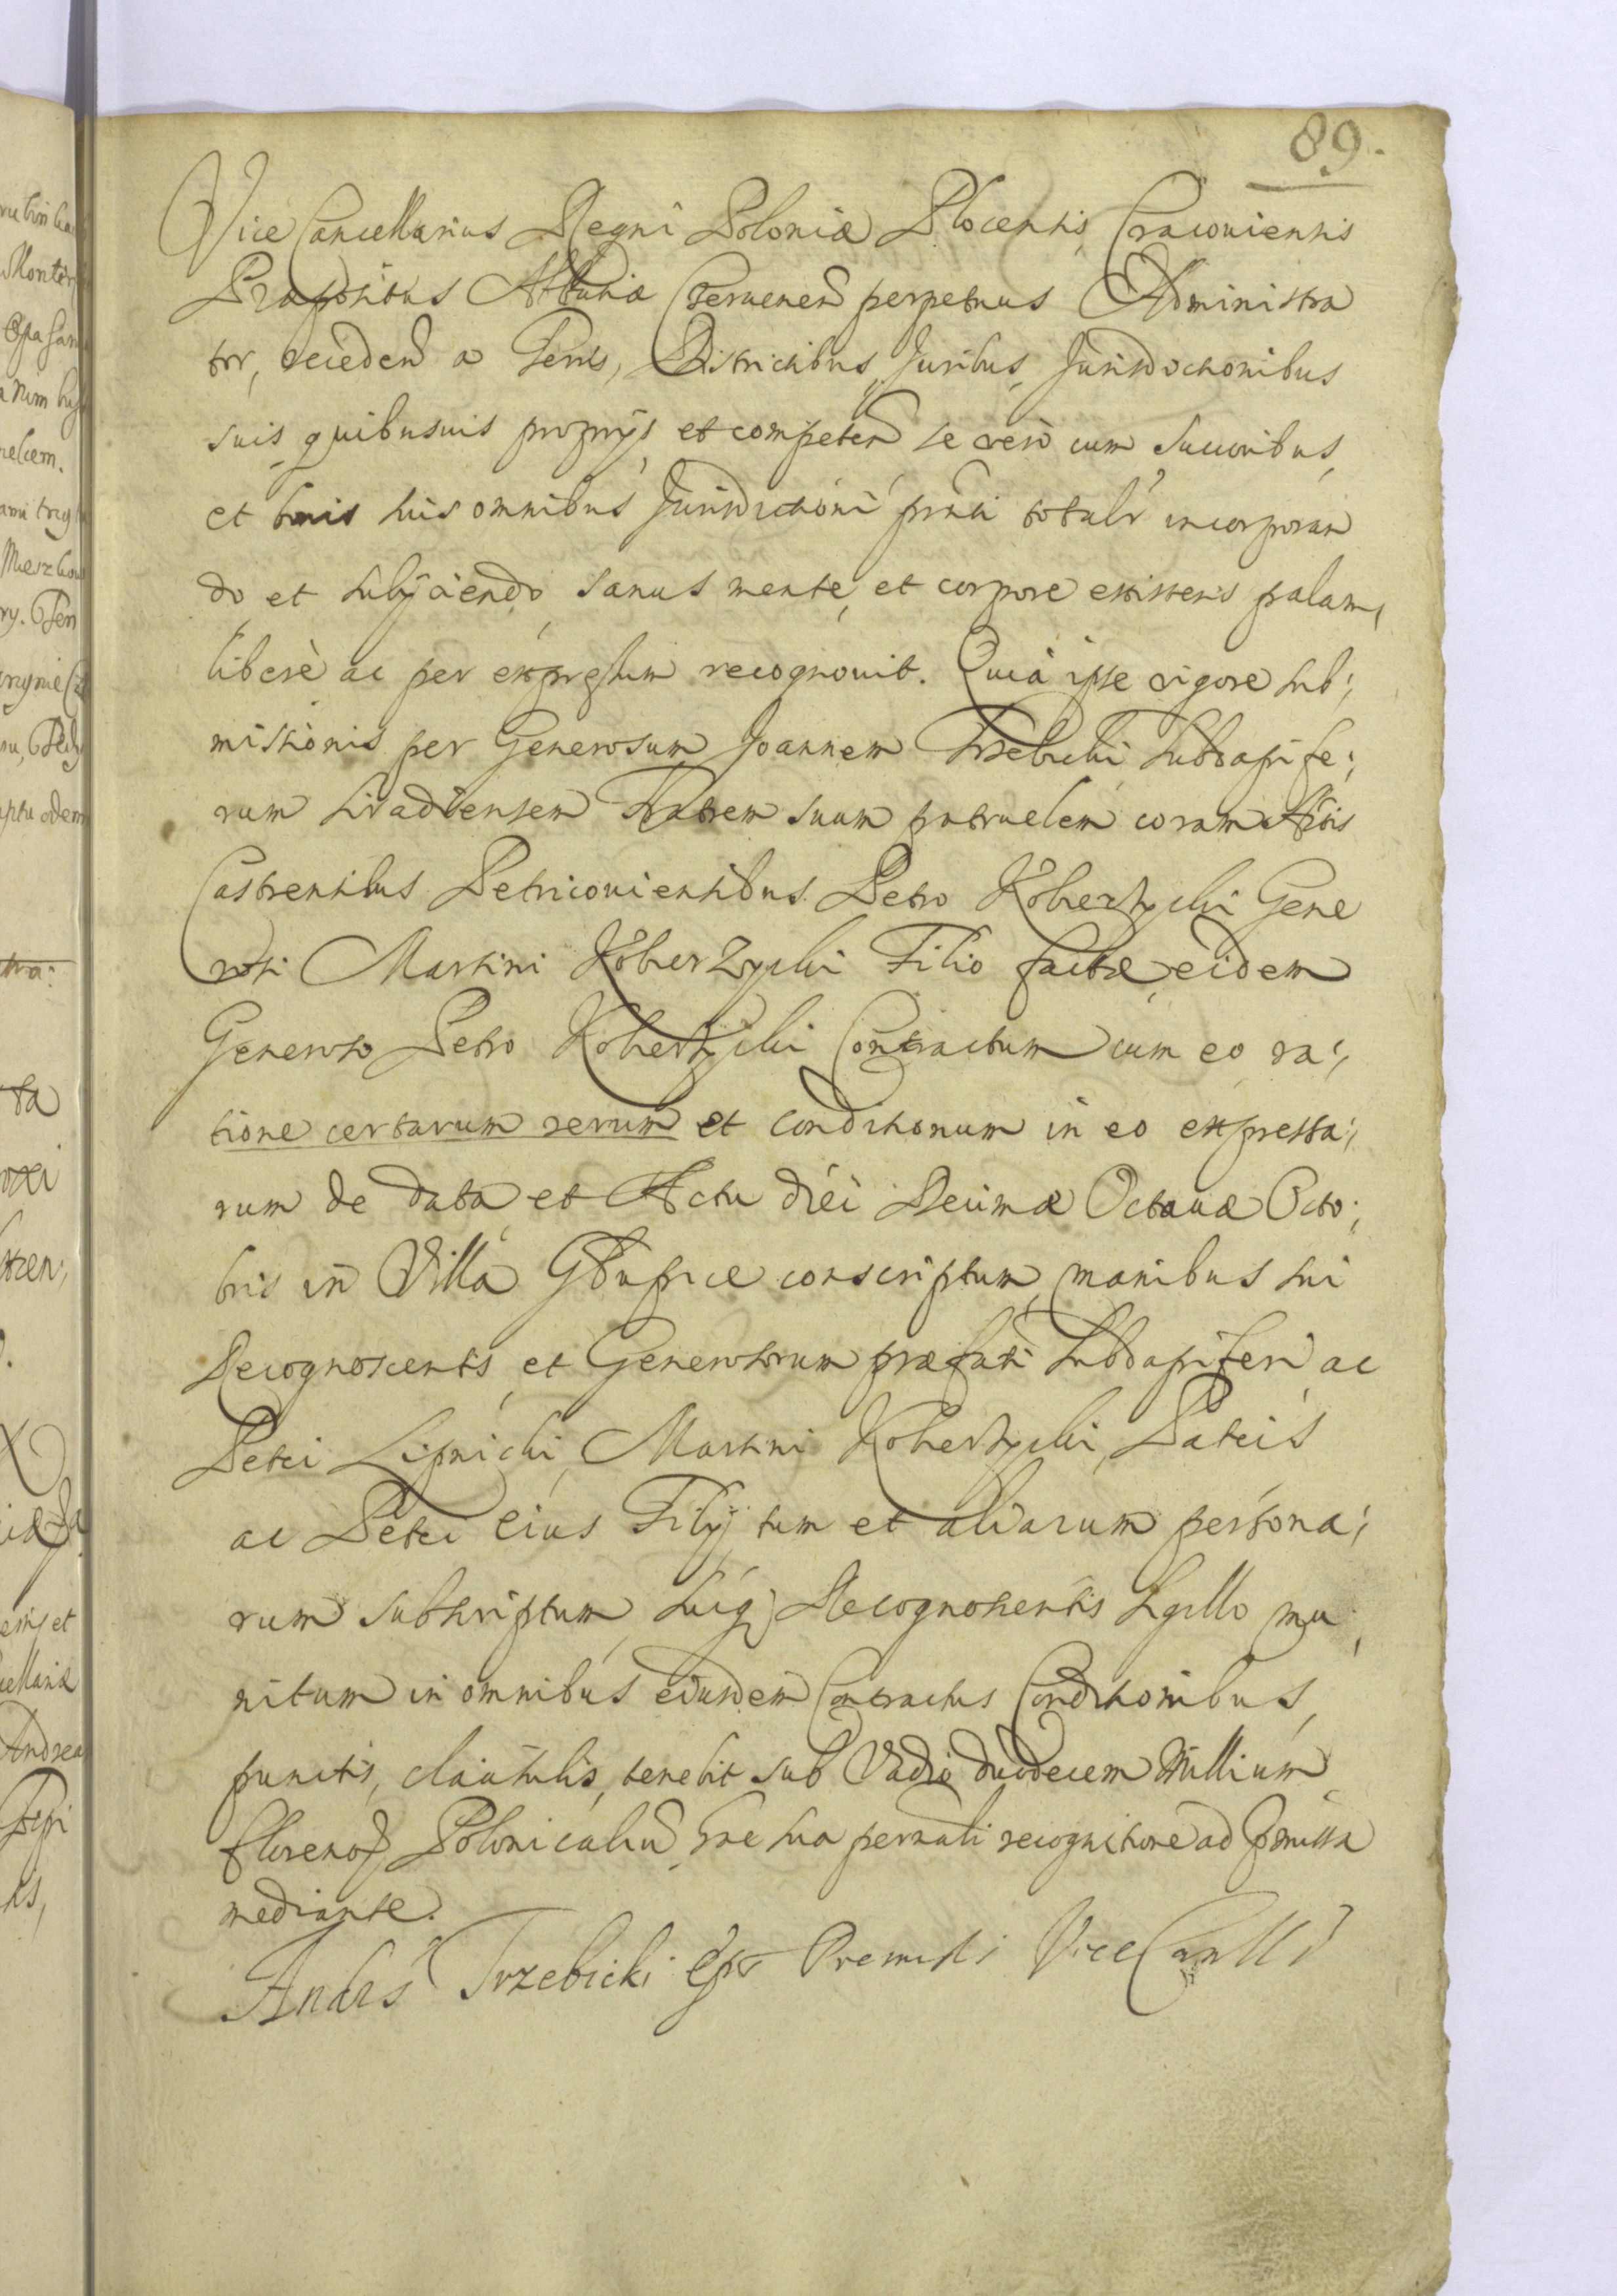 89.
Vice Cancellarius Regni Poloniæ Plocensis, Cracouiensis
Præpositus Abbatiæ Czeruenen perpetuus Administra
tor, recedend a Terris, Districtibus, Juribus, Jurisdictionibus
suis quibusuis proprijs et competen se vero cum Succoribus,
et bonis suis omnibus Jurisdictioni pnti totalr incorporan
do et subijciendo, sanus mente, et corpore existens palam,
liberè ac per expressum recognouit. Quia ipse vigore sub;
missionis per Generosum Joannem Trzebicki Subdapife;
rum Siradiensem Fratrem suum patruelem coram Actis
Castrensibus Petricouiensibus Petro Kobierzycki Gene
rosi Martini Kobierzycki Filio factæ eidem
Generoso Petro Kobierzycki Contractum cum eo ra;
tione certarum rerum et conditionum in eo expressa;
rum de data et Actu diei Decimæ Octauæ Octo;
bris in Villa conscriptum, manibus sui
Recognoscentis et Generosorum præfati Subdapiferi ac
Petri Lipnicki, Martini Kobierzycki, Patris
ac Petri eius Filij tum et aliarum persona;
rum subscriptum, suiq Recognoscentis Sigillo mu
nitum in omnibus eiusdem Contractus Conditionibus,
punctis, clausulis, tenebit sub Vadio duodecem Millium
florenoꝝ Polonicaliu hac sua personali recognitione ad præmissa
mediante.
Andrs Trzebicki Epr Premisli ViceCanllr